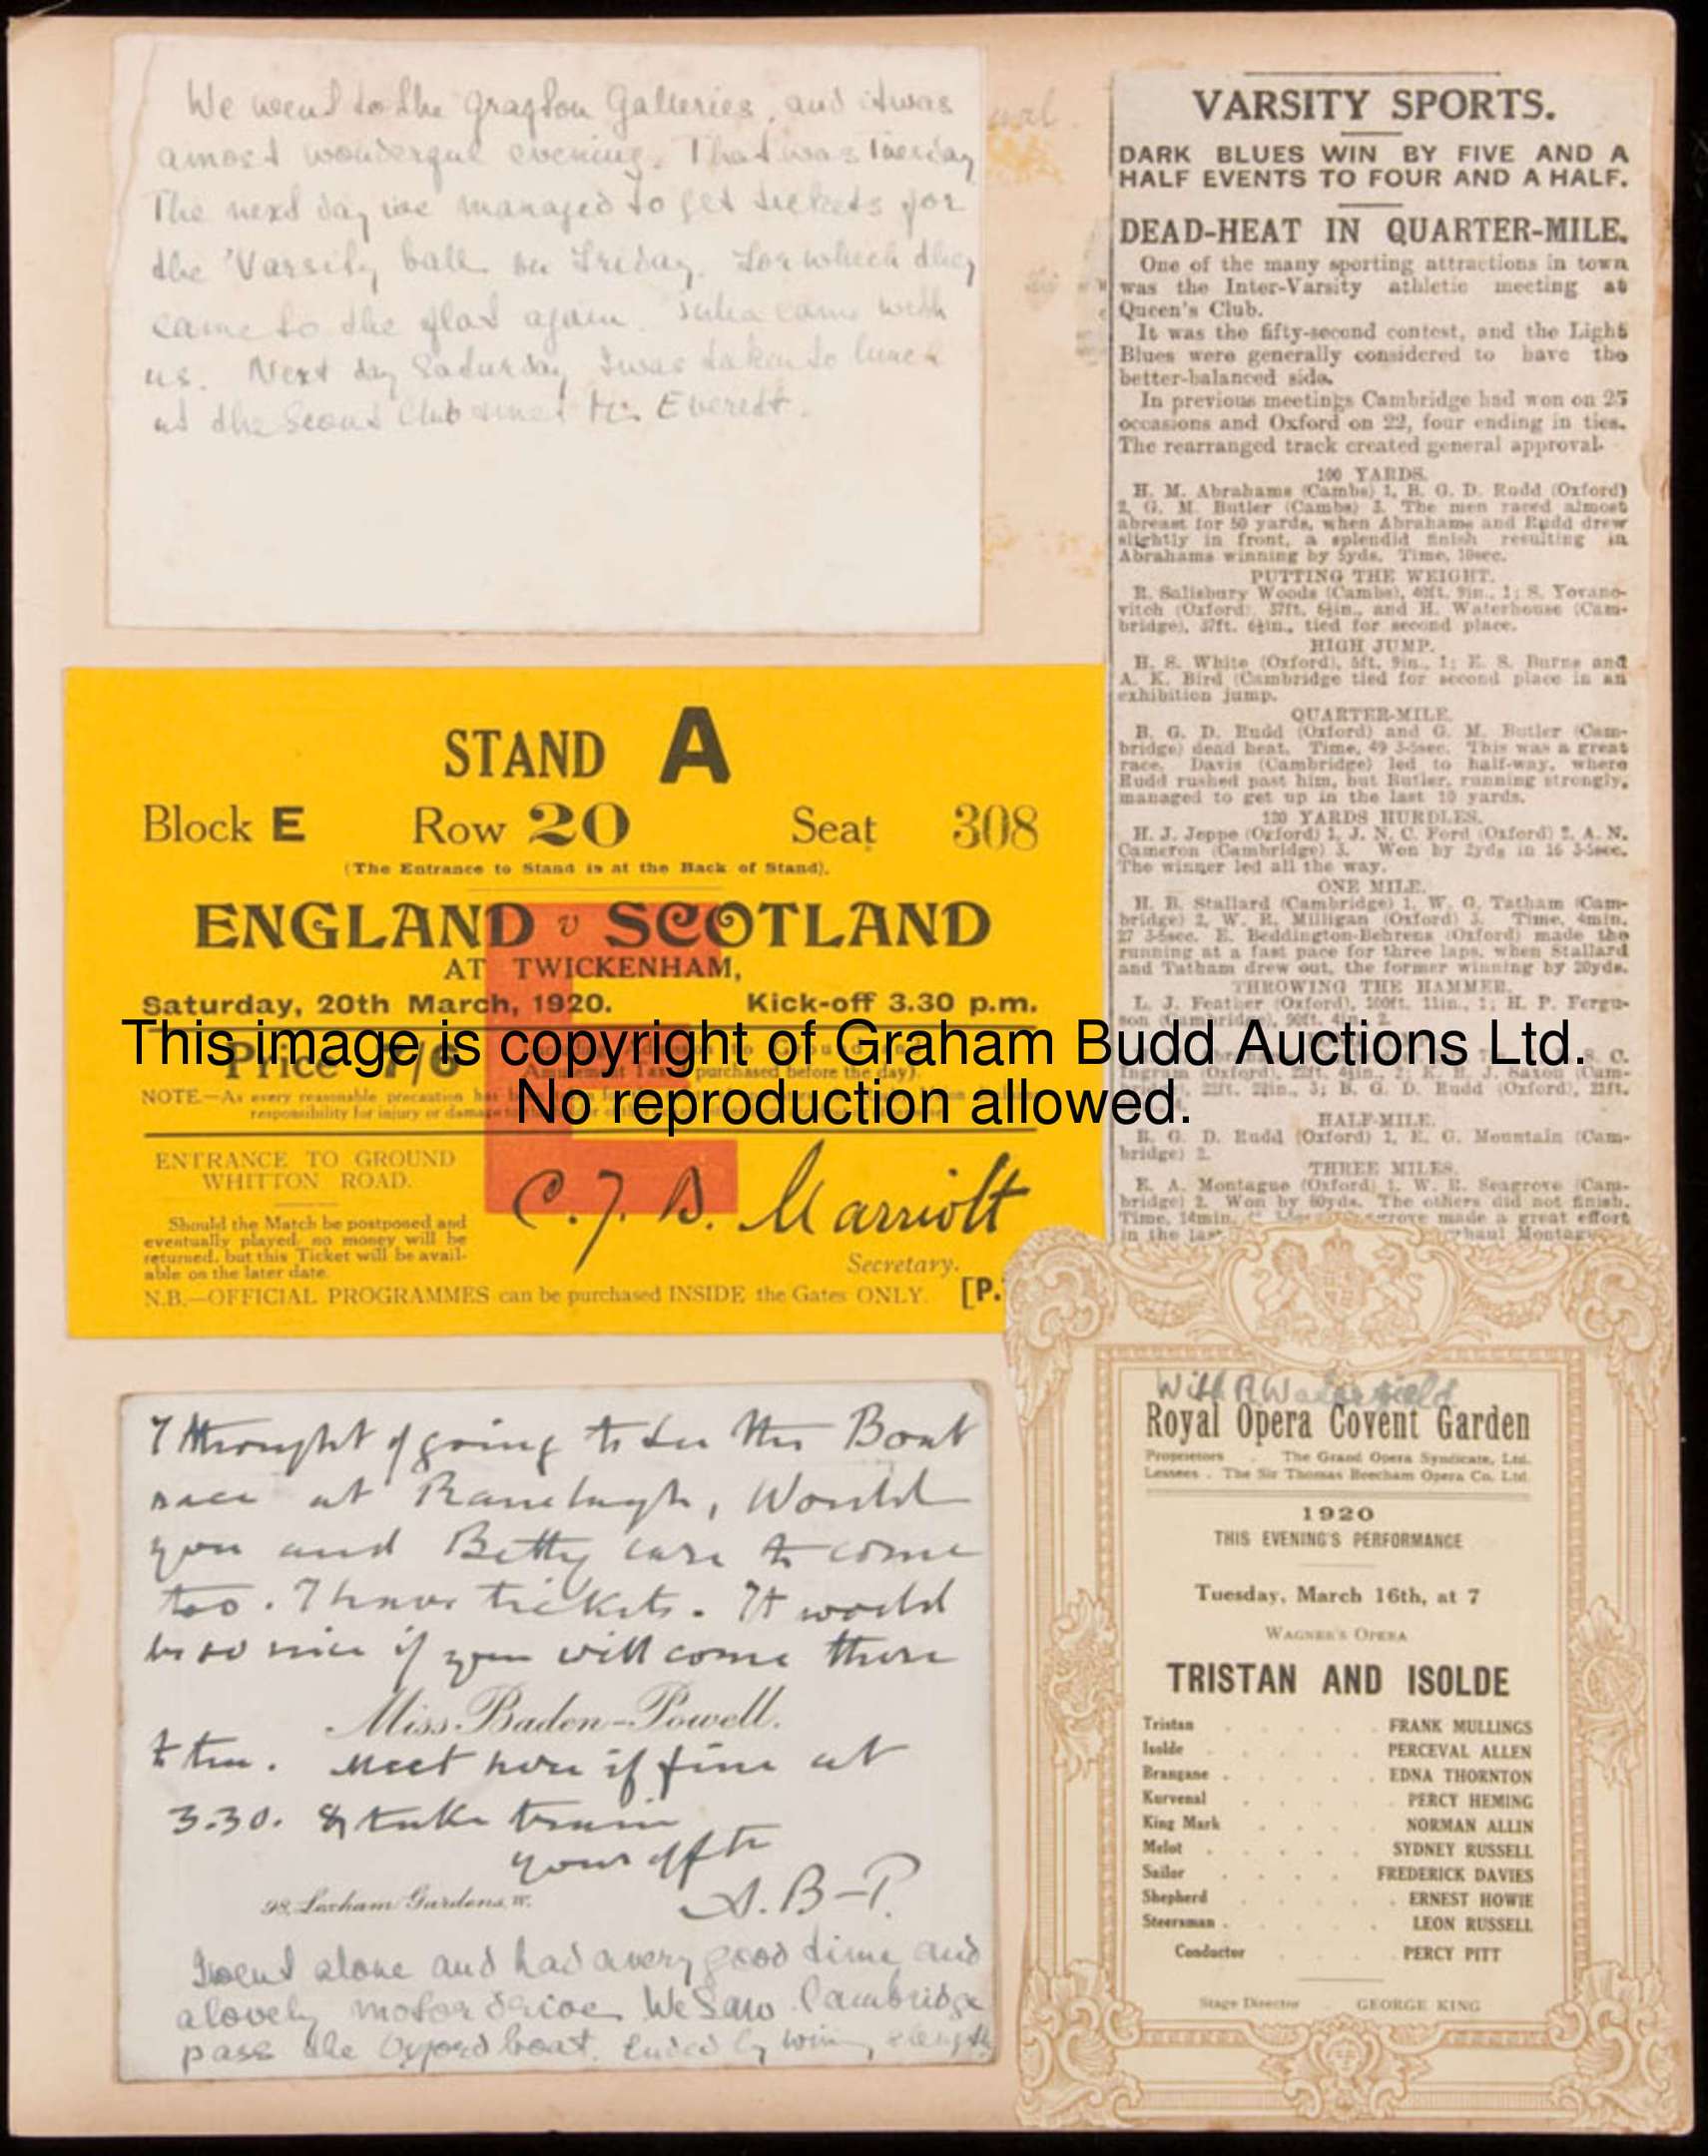 We went to the Grafton Galleries, and it was
a most wonderful evening. That was Tuesday
The next day we managed to get tickets for
the 'Varsity ball on Friday. For which they
came to the flat again. came with
us. Next day Saturday I was taken to lunch
at the Scout Club and met Mr. Everett.
VARSITY SPORTS.
DARK BLUES WIN BY FIVE AND A
HALF EVENTS TO FOUR AND A HALF.
DEAD-HEAT IN QUARTER-MILE.
One of the many sporting attractions in town
was the Inter-Varsity athletic meeting at
Queen's Club.
It was the fifty-second contest, and the Light
Blues were generally considered to have the
better-balanced side.
In previous meetings Cambridge had won on 25
occasions and Oxford on 22, four ending in ties.
The rearranged track created general approval.
100 YARDS.
H. M. Abrahams (Cambs) 1, B. G. D. Rudd (Oxford)
2, G. M. Butler (Cambs) 3. The men raced almost
abreast for 50 yards, when Abrahams and Rudd drew
slightly in front, a splendid finish resulting in
Abrahams winning by 5yds. Time, 10sec.
PUTTING THE WEIGHT.
R. Salisbury Woods (Cambs), 40ft. 9in., 1; S. Yovano-
vitch (Oxford), 37ft. 6½in., and H. Waterhouse (Cam-
bridge), 37ft. 6½in., tied for second place.
HIGH JUMP.
H. S. White (Oxford), 5ft. 9in., 1; E. S. Burns and
A. K. Bird (Cambridge tied for second place in an
exhibition jump.
QUARTER-MILE.
B. G. D. Rudd (Oxford) and G. M. Butler (Cam-
bridge) dead heat. Time, 49 3-5sec. This was a great
race. Davis (Cambridge) led to half-way, where
Rudd rushed past him, but Butler, running strongly,
managed to get up in the last 10 yards.
120 YARDS HURDLES.
H. J. Jeppe (Oxford) 1, J. N. C. Ford (Oxford) 2, A. N.
Cameron (Cambridge) 3. Won by 2yds in 16 3-5sec.
The winner led all the way.
ONE MILE.
H. B. Stallard (Cambridge) 1, W. G. Tatham (Cam-
bridge) 2, W. R. Milligan (Oxford) 3. Time, 4min.
27 3-5sec. E. Beddington-Behrens (Oxford) made the
running at a fast pace for three laps, when Stallard
and Tatham drew out, the former winning by 20yds.
THROWING THE HAMMER.
L. J. Feather (Oxford), 100ft. 11in., 1; H. P. Fergu-
son (Cambridge), 90ft. 4in., 2.
S. C.
Ingram (Oxford), 22ft. 4in., 2; E. R. J. Saxon (Cam-
22ft. 2½in., 3; B. G. D. Rudd (Oxford), 21ft.
HALF-MILE.
B. G. D. Rudd (Oxford) 1, E. G. Mountain (Cam-
bridge) 2.
THREE MILES.
E. A. Montague (Oxford) 1, W. R. Seagrove (Cam-
bridge) 2. Won by 80yds. The others did not finish.
Time, 14min. made a great effort
in the last
STAND A
Block E Row 20 Seat 308
(The Entrance to Stand is at the Back of Stand).
ENGLAND v SCOTLAND
AT TWICKENHAM,
Saturday, 20th March, 1920. Kick-off 3.30 p.m.
This image is copyright of Graham Budd Auctions Ltd.
No reproduction allowed.
Price 7/6
purchased before the day).
NOTE.—As every reasonable precaution has
responsibility for injury or damage
ENTRANCE TO GROUND
WHITTON ROAD.
Should the Match be postponed and
eventually played, no money will be
returned, but this Ticket will be avail-
able on the later date.
C. J. B. Marriott
Secretary.
N.B.—OFFICIAL PROGRAMMES can be purchased INSIDE the Gates ONLY. [P.
I thought of going to see the Boat
race at Ranelagh, Would
you and Betty care to come
too. I have tickets. It would
be so nice if you will come there
Miss Baden-Powell.
to tea. Meet here if fine at
3.30. & take train
your affte
A. B-P.
98, Lexham Gardens, W.
I went alone and had a very good time and
a lovely motor drive. We saw Cambridge
pass the Oxford boat.
With R Waterfield
Royal Opera Covent Garden
Proprietors . The Grand Opera Syndicate, Ltd.
Lessees . The Sir Thomas Beecham Opera Co. Ltd.
1920
THIS EVENING'S PERFORMANCE
Tuesday, March 16th, at 7
WAGNER'S OPERA
TRISTAN AND ISOLDE
Tristan . . . . . FRANK MULLINGS
Isolde . . . . . PERCEVAL ALLEN
Brangane . . . . . EDNA THORNTON
Kurvenal . . . . . PERCY HEMING
King Mark . . . . NORMAN ALLIN
Melot . . . . . SYDNEY RUSSELL
Sailor . . . . FREDERICK DAVIES
Shepherd . . . . . ERNEST HOWIE
Steersman . . . . . LEON RUSSELL
Conductor . . . PERCY PITT
Stage Director . GEORGE KING